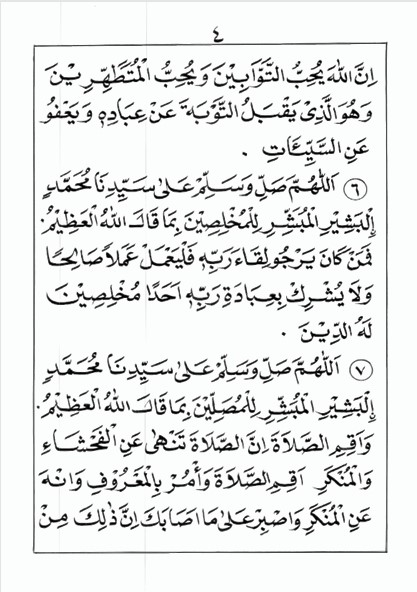 ٤
اِنَّ اللّٰهَ يُحِبُّ التَّوَّابِيْنَ وَيُحِبُّ الْمُتَطَهِّرِيْنَ
وَهُوَ الَّذِيْ يَقْبَلُ التَّوْبَةَ عَنْ عِبَادِهٖ وَيَعْفُو
عَنِ السَّيِّئَاتِ .
٦ اَللّٰهُمَّ صَلِّ وَسَلِّمْ عَلٰى سَيِّدِنَا مُحَمَّدٍ
اِلْبَشِيْرِ الْمُبَشِّرِ لِلْمُخْلِصِيْنَ بِمَا قَالَ اللّٰهُ الْعَظِيْمُ.
فَمَنْ كَانَ يَرْجُو لِقَاءَ رَبِّهٖ فَلْيَعْمَلْ عَمَلاً صَالِحًا
وَلَا يُشْرِكْ بِعِبَادَةِ رَبِّهٖ اَحَدًا مُخْلِصِيْنَ
لَهُ الدِّيْنَ .
٧ اَللّٰهُمَّ صَلِّ وَسَلِّمْ عَلٰى سَيِّدِنَا مُحَمَّدٍ
اِلْبَشِيْرِ الْمُبَشِّرِ لِلْمُصَلِّيْنَ بِمَا قَالَ اللّٰهُ الْعَظِيْمُ.
وَاَقِمِ الصَّلَاةَ اِنَّ الصَّلَاةَ تَنْهٰى عَنِ الْفَحْشَاءِ
وَالْمُنْكَرِ اَقِمِ الصَّلَاةَ وَأْمُرْ بِالْمَعْرُوْفِ وَانْهَ
عَنِ الْمُنْكَرِ وَاصْبِرْ عَلٰى مَا اَصَابَكَ اِنَّ ذٰلِكَ مِنْ